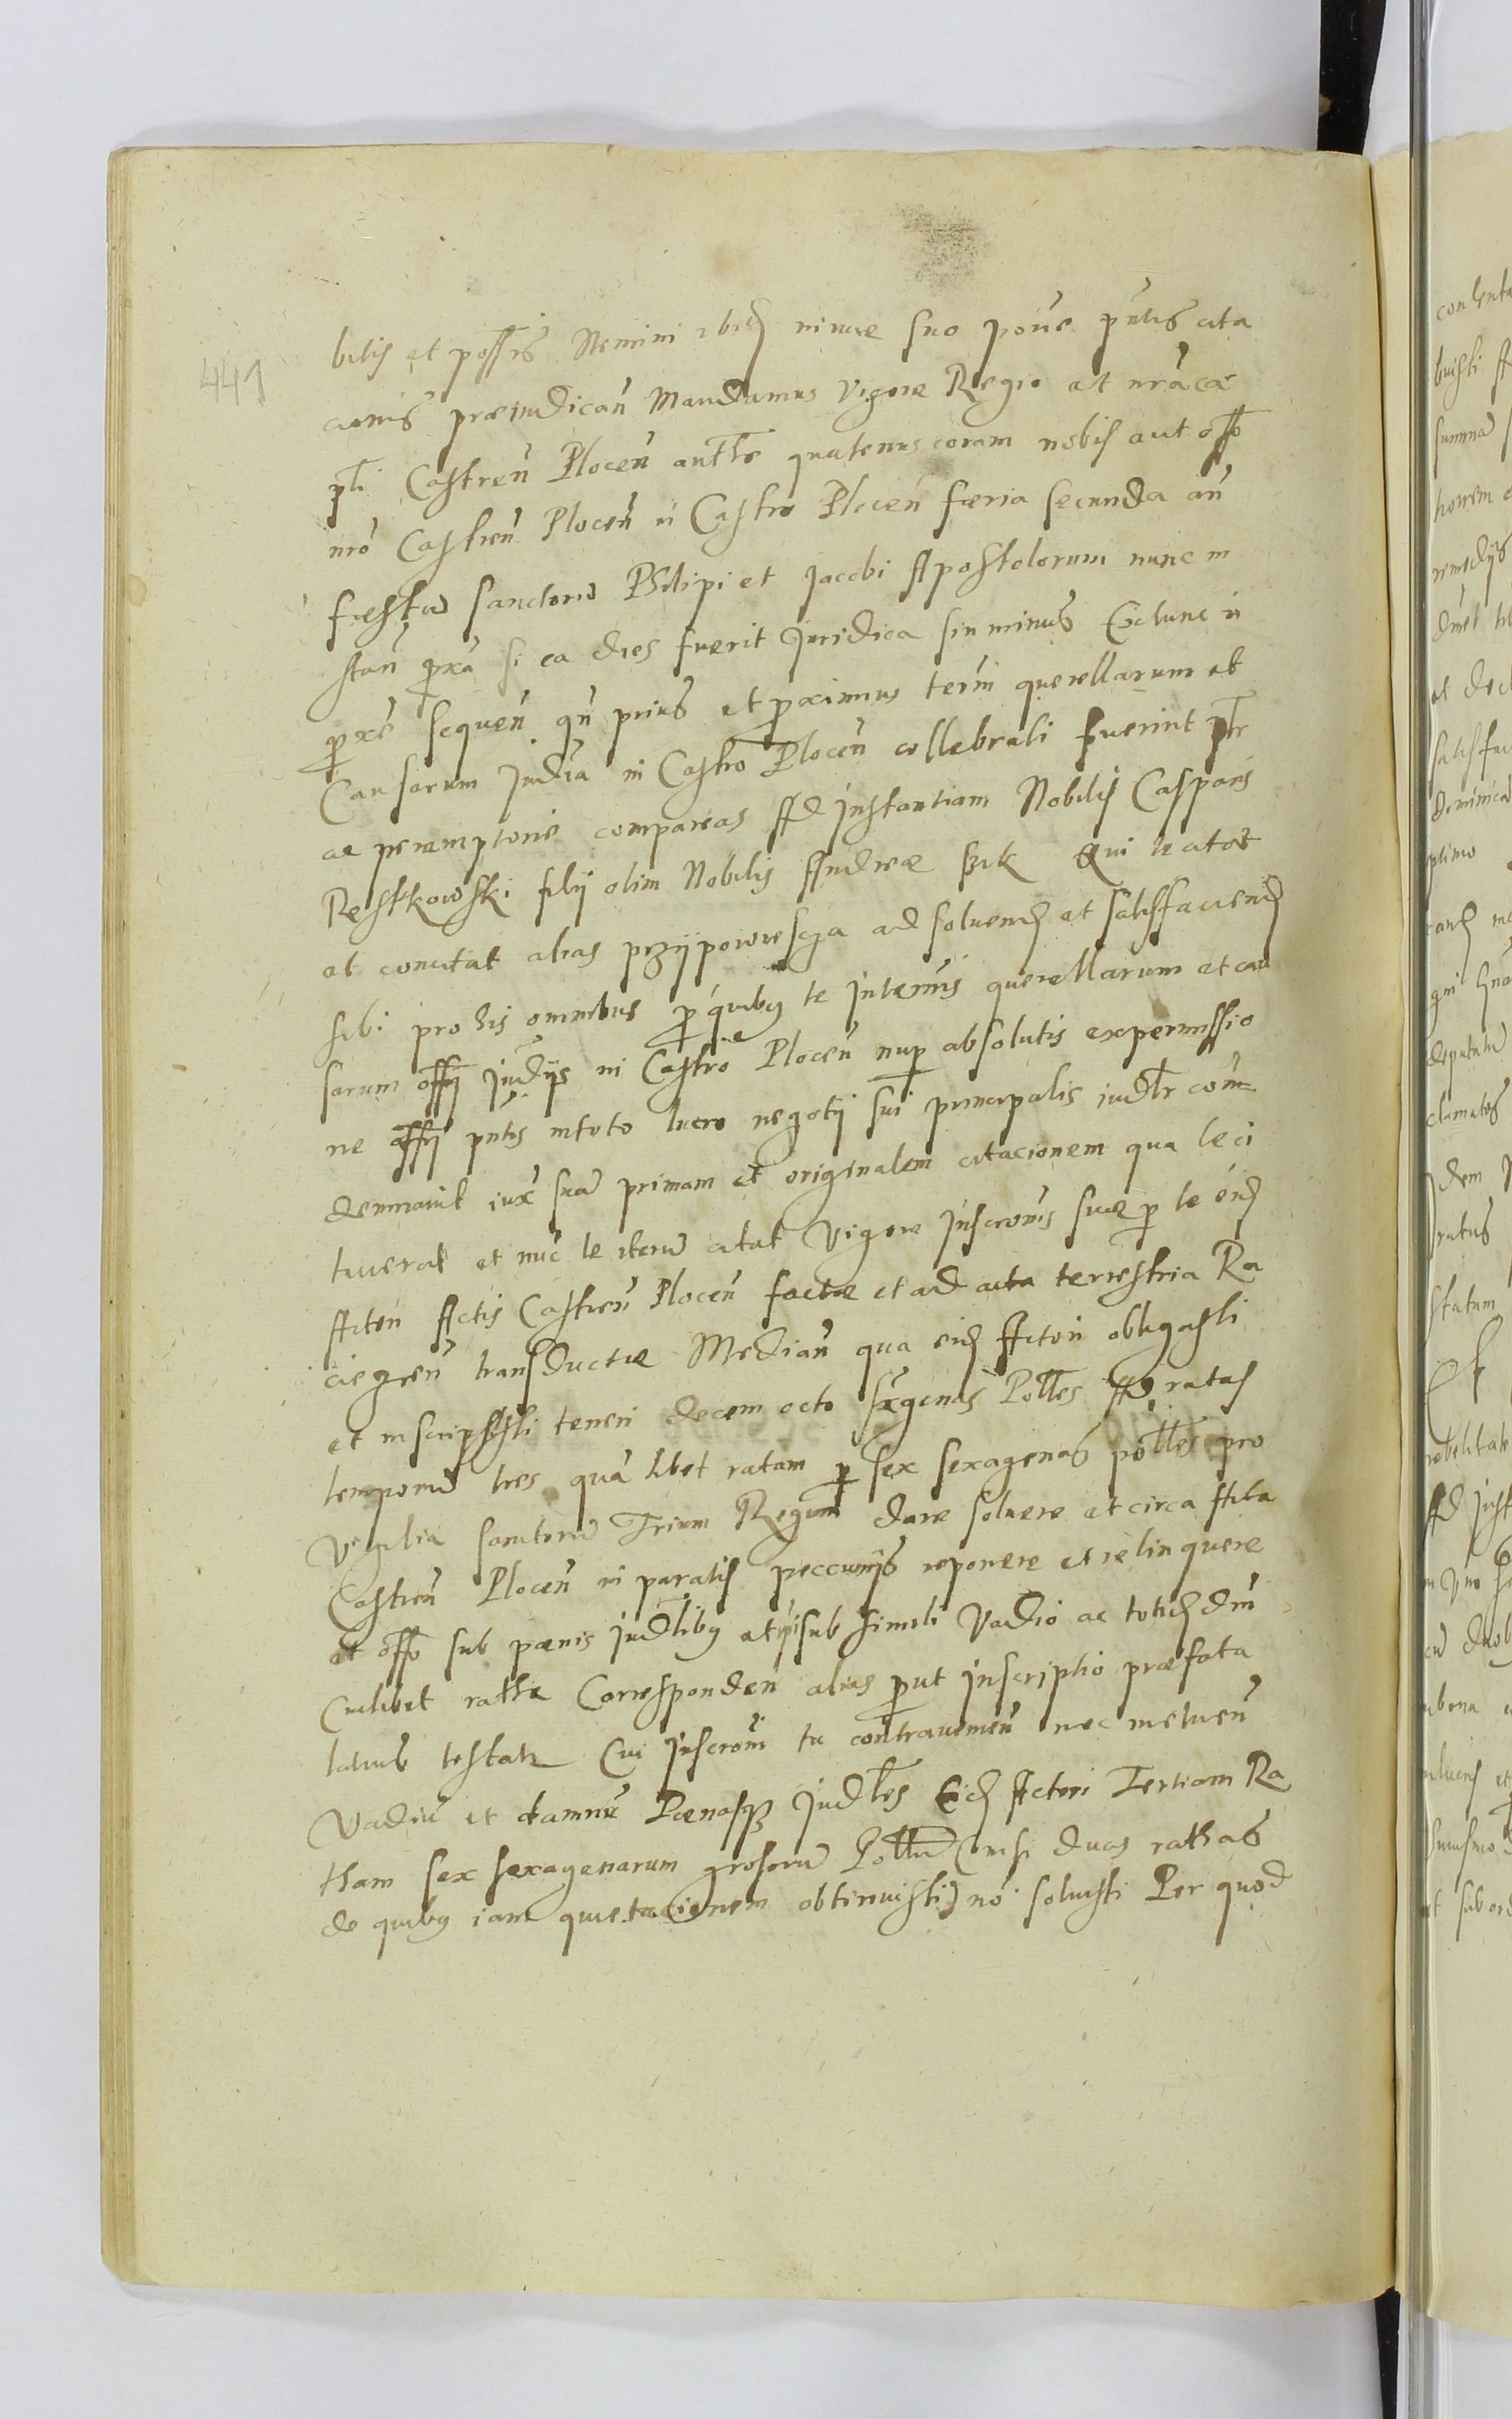 441
bilis et possis Nemini ibid in iure suo pone pntis cita
cionis præiudican Mandamus Vigore Regio et nra ca
pli Castren Plocen autthe quatenus coram nobis aut offo
nro Castren Plocen in Castro Plocen færia secunda an
fæstu sanctoru Philipi et Jacobi Apostolorum nunc in
stan pxa si ea dies fuerit Juridica sin minus Extunc in
pxe sequen qn prius et proximus termi querellarum et
Causarum Judia in Castro Plocen cellebrati fuerint ptr
ac peremptorie compareas Ad Instantiam Nobilis Casparis
Restkowski filij olim Nobilis Andreæ Qui te citat
et concitat alias przypowiescza ad soluend et satisfaciend
sibi pro his omnibus p quibus te in termis querellarum et cau
sarum offij Judijs in Castro Plocen nup absolutis ex permissio
ne offij pntis in toto lucro negotij sui principalis iudlr con
demnauit iux sua primam et originalem citacionem qua te ci
tauerat et nuc te iteru citat Vigore Inscronis suæ p te eid
Actori Actis Castren Plocen factæ et ad acta terrestria Ra
ciegzen transductæ Median qua eid Actori obligasti
et inscripsisti teneri decem octo sexgenas Polles Ad ratas
temporu tres qua libet ratam p sex sexagenas polles pro
Vigilia sanctoru Trium Regum dare soluere et circa Acta
Castren Plocen in paratis peccunijs reponere et relinquere
et offo sub pænis Judlibus et ipi sub simili Vadio ac totid dni
Cuilibet rathæ Corresponden alias put Inscriptio præfata
latius testatr Cui Inscroni tu contrauenien nec metuen
Vadiu et damnu Pænasque Judles Eid Actori Tertiam Ra
tham sex sexagenarum grosoru Pollu (nisi duas rathas
de quibus iam quietacionem obtinuisti) no soluisti Per quod